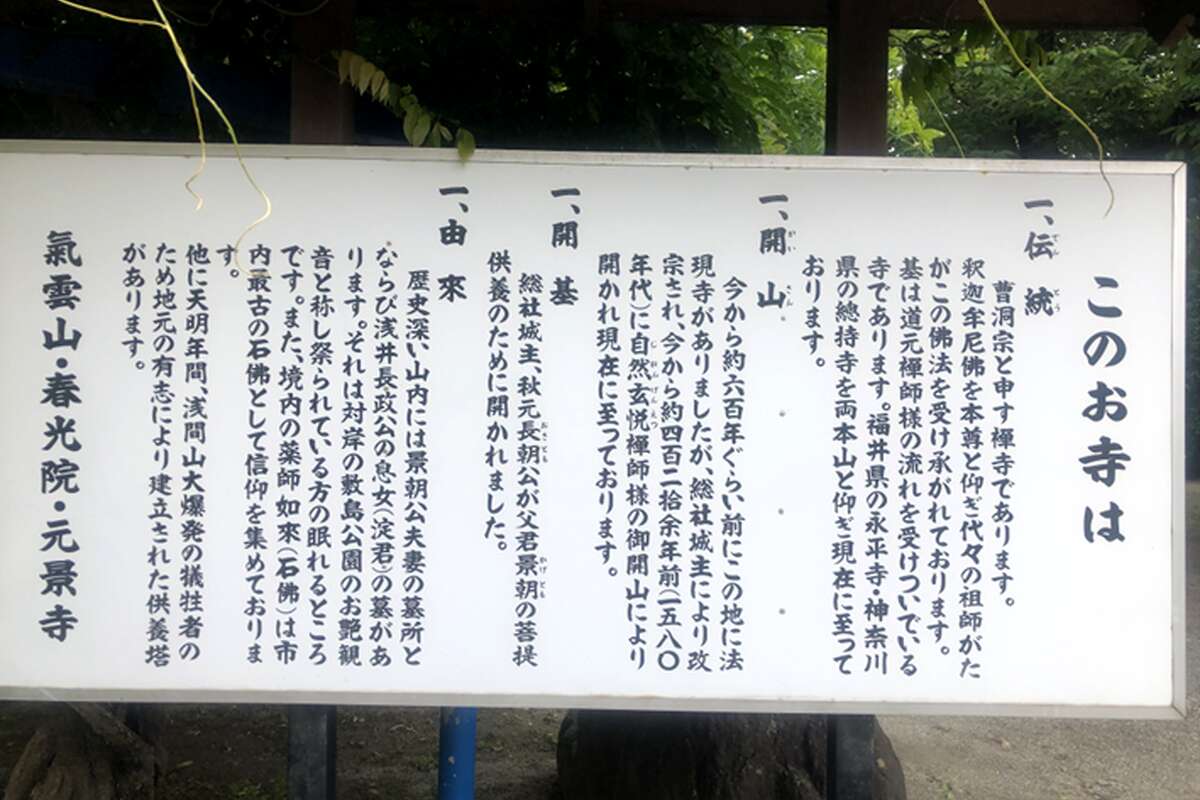 このお寺は
一、伝統
でん とう
曹洞宗と申す禅寺であります。
釈迦牟尼佛を本尊と仰ぎ代々の祖師がた
がこの佛法を受け承がれております。
基は道元禅師様の流れを受けついでいる
寺であります。福井県の永平寺・神奈川
県の總持寺を両本山と仰ぎ現在に至って
おります。
一、開山
かい さん
今から約六百年ぐらい前にこの地に法
現寺がありましたが、総社城主により改
宗され、今から約四百二拾余年前(一五八〇
年代)に自然玄悦禅師様の御開山により
じねんげんえつ
開かれ現在に至っております。
一、開基
総社城主、秋元長朝公が父君景朝の菩提
おさとも かげとも
供養のために開かれました。
一、由來
歴史深い山内には景朝公夫妻の墓所と
ならび浅井長政公の息女(淀君)の墓があ
ります。それは対岸の敷島公園のお艶観
音と称し祭られている方の眠れるところ
です。また、境内の薬師如來(石佛)は市
内最古の石佛として信仰を集めておりま
す。
他に天明年間、浅間山大爆発の犠牲者の
ため地元の有志により建立された供養塔
があります。
氣雲山・春光院・元景寺